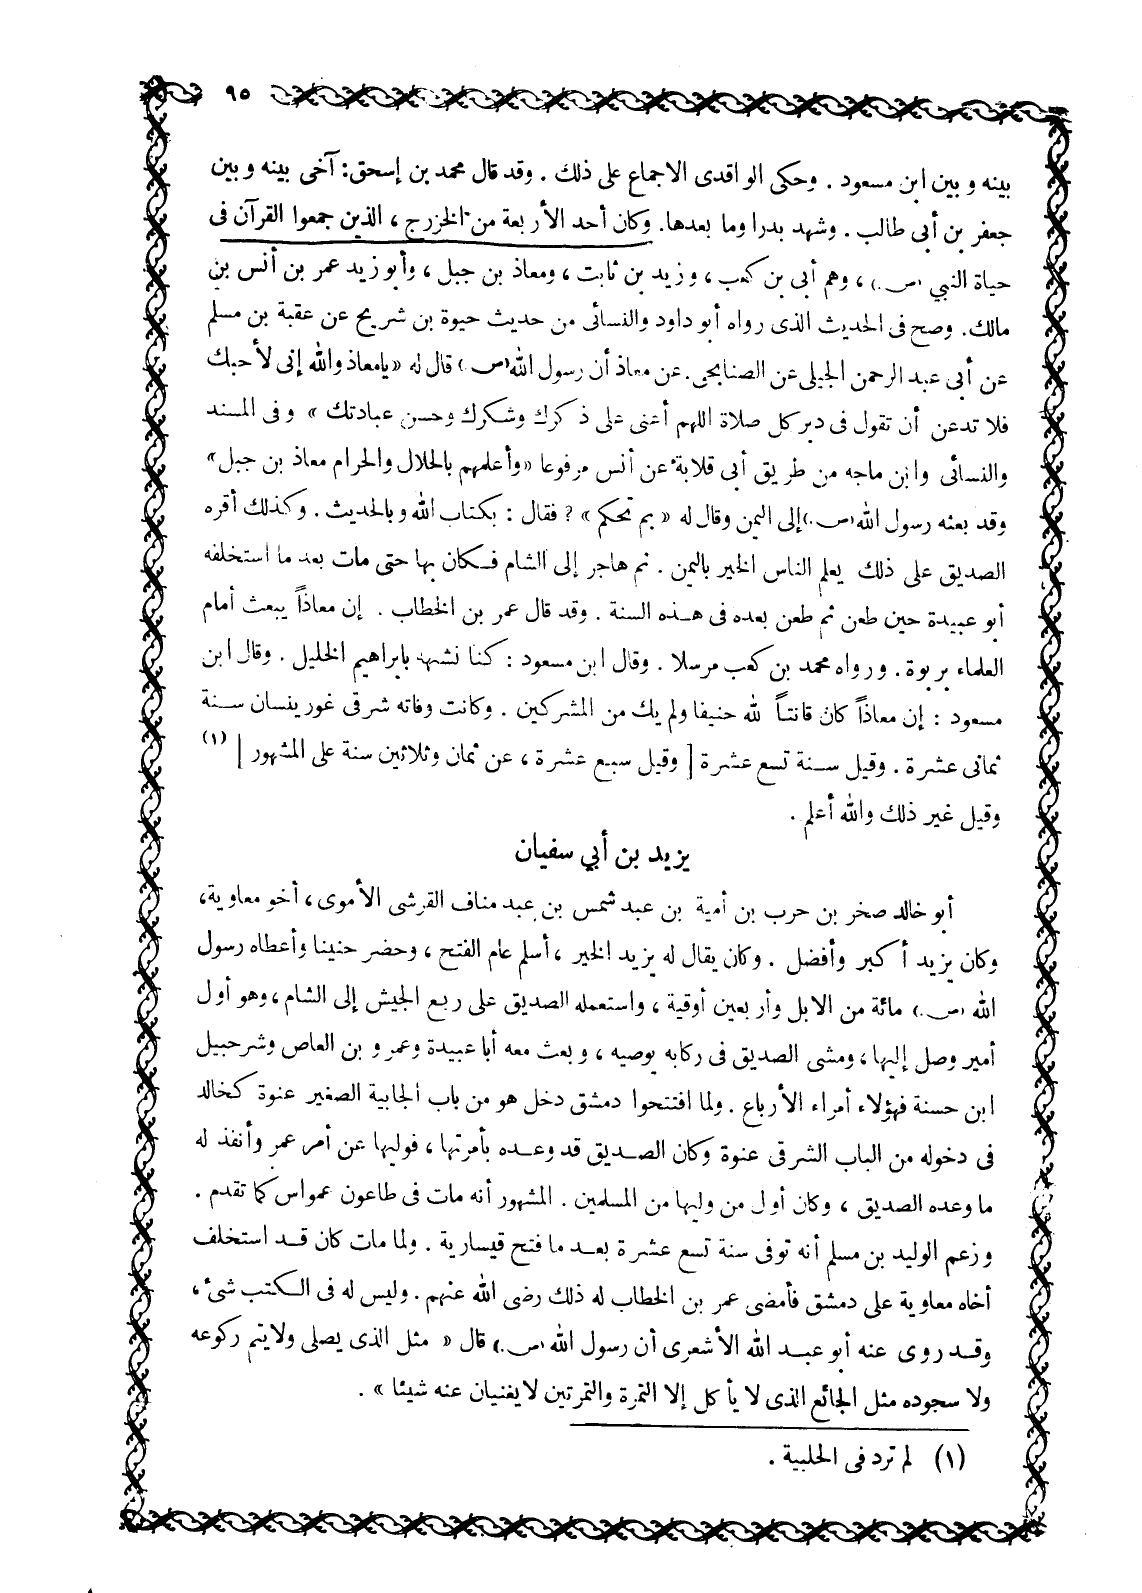 ٩٥
بينه و بين ابن مسعود . وحكى الواقدى الاجماع على ذلك . وقد قال محمد بن إسحق: آخى بينه و بين
جعفر بن أبى طالب . وشهد بدرا وما بعدها. وكان أحد الأربعة من الخزرج ، الذين جمعوا القرآن فى
حياة النبي (ص.) ، وهم أبى بن كعب ، وزيد بن ثابت ، ومعاذ بن جبل ، وأبو زيد عمر بن أنس بن
مالك. وصح فى الحديث الذى رواه أبو داود والنسائى من حديث حيوة بن شريح عن عقبة بن مسلم
عن أبى عبد الرحمن الجيلى عن الصنابحى. عن معاذ أن رسول الله (ص.) قال له «يامعاذ والله إنى لأحبك
فلا تدعن أن تقول فى دبر كل صلاة اللهم أعنى على ذكرك وشكرك وحسن عبادتك » وفى المسند
والنسائى وابن ماجه من طريق أبى قلابة عن أنس مرفوعا «وأعلمهم بالحلال والحرام معاذ بن جبل»
وقد بعثه رسول الله (ص.) إلى اليمن وقال له « بم تحكم » ? فقال : بكتاب الله وبالحديث . وكذلك أقره
الصديق على ذلك يعلم الناس الخير باليمن . ثم هاجر إلى الشام فكان بها حتى مات بعد ما استخلفه
أبو عبيدة حين طعن ثم طعن بعده فى هذه السنة . وقد قال عمر بن الخطاب . إن معاذاً يبعث أمام
العلماء بربوة . ورواه محمد بن كعب مرسلا . وقال ابن مسعود : كنا نشبهه بابراهيم الخليل . وقال ابن
مسعود : إن معاذاً كان قانتاً لله حنيفا ولم يك من المشركين . وكانت وفاته شرقى غور بنسان سنة
ثمانى عشرة . وقيل سنة تسع عشرة [ وقيل سبع عشرة ، عن ثمان وثلاثين سنة على المشهور ] (١)
وقيل غير ذلك والله أعلم .
يزيد بن أبي سفيان
أبو خالد صخر بن حرب بن أمية بن عبد شمس بن عبد مناف القرشى الأموى ، أخو معاوية،
وكان يزيد أكبر وأفضل . وكان يقال له يزيد الخير ، أسلم عام الفتح ، وحضر حنينا وأعطاه رسول
الله (ص.) مائة من الابل وأربعين أوقية ، واستعمله الصديق على ربع الجيش إلى الشام ، وهو أول
أمير وصل إليها ، ومشى الصديق فى ركابه يوصيه ، وبعث معه أبا عبيدة وعمرو بن العاص وشرحبيل
ابن حسنة فهؤلاء أمراء الأرباع . ولما افتتحوا دمشق دخل هو من باب الجابية الصغير عنوة كخالد
فى دخوله من الباب الشرقى عنوة وكان الصديق قد وعده بأمرتها ، فوليها عن أمر عمر وأنفذ له
ما وعده الصديق ، وكان أول من وليها من المسلمين . المشهور أنه مات فى طاعون عمواس كما تقدم .
وزعم الوليد بن مسلم أنه توفى سنة تسع عشرة بعد ما فتح قيسارية . ولما مات كان قد استخلف
أخاه معاوية على دمشق فأمضى عمر بن الخطاب له ذلك رضى الله عنهم . وليس له فى الكتب شئ ،
وقد روى عنه أبو عبد الله الأشعرى أن رسول الله (ص.) قال « مثل الذى يصلى ولايتم ركوعه
ولا سجوده مثل الجائع الذى لا يأكل إلا التمرة والتمرتين لا يغنيان عنه شيئا » .
(١) لم ترد فى الحلبية .